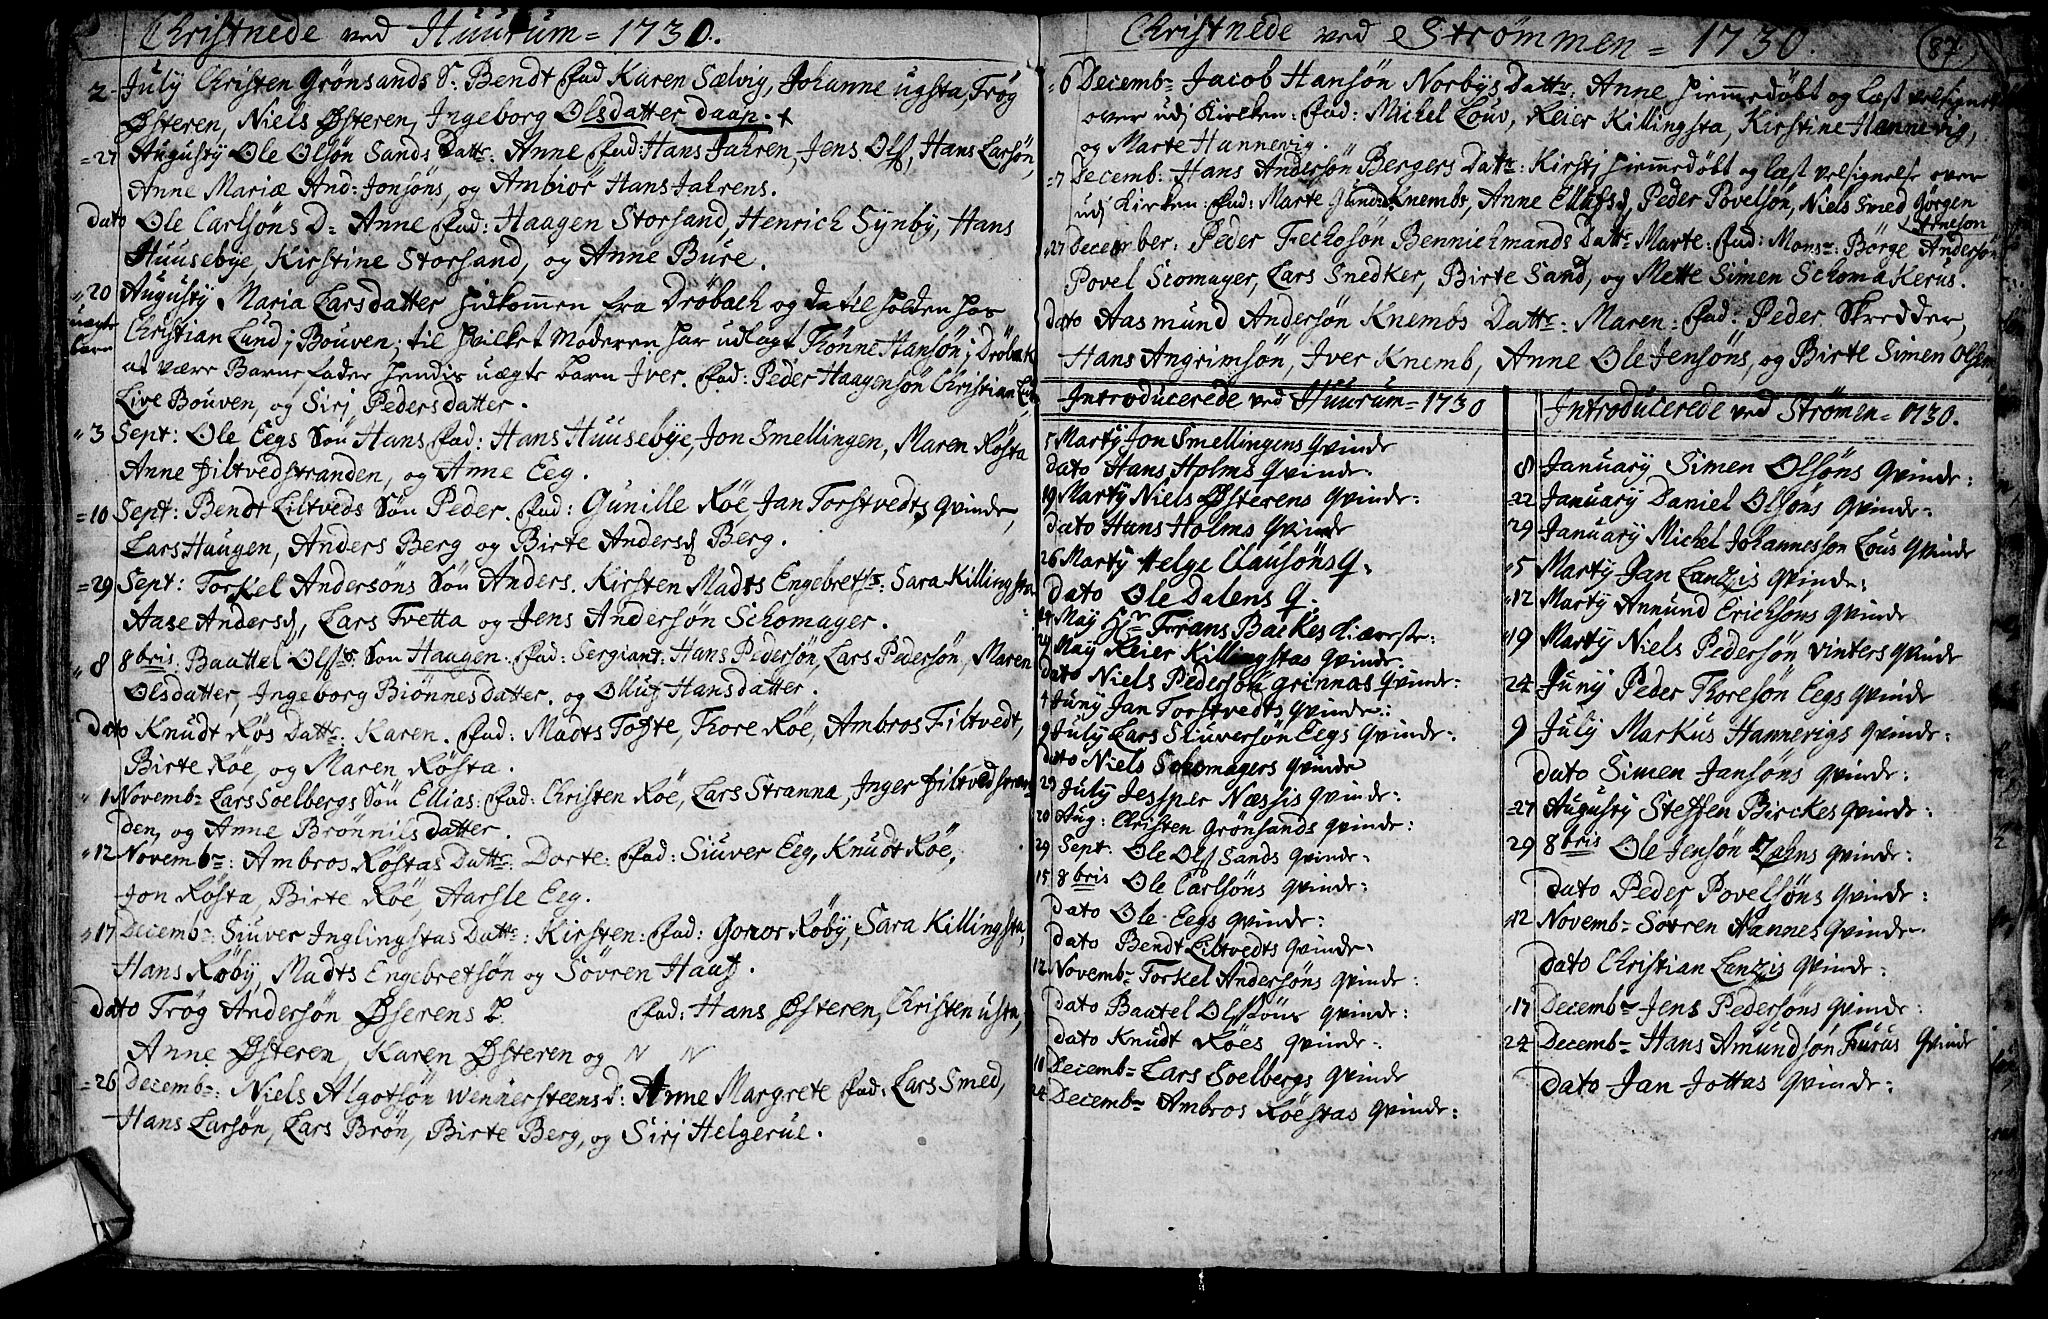 Christnede ved Huurum = 1730.
2 July Christen Grönsands S. Bendt Fad Karen Sælvig, Johanne ugsta, Trög
Østeren, Niels Østeren, Ingeborg Olsdatter daap. +
= 27 Augusty Ole Olsön Sands Datt: Anne Fad: Hans Jahren, Jens Ols, Hans Larsön,
Anne Mariæ And: Jonsöns, og Ambiör Hans Jahrens.
dato Ole Carlsöns D= Anne Fad: Haagen Storsand, Henrich Synby, Hans
Huusebye, Kirstine Storsand, og Anne Bure.
20 Augusty Maria Larsdatter hidkommen fra Dröbach og da til holden hos
uægte barn Christian Lund i Bouven; til hvilket Moderen har udlagt Trönne Hansön i Dröbak
at være Barnefader hendis uægte barn Iver. Fad: Peder Haagensön Christian
Live Bouven, og Siri Pedersdatter.
3 Sept: Ole Eegs Sön Hans Fad: Hans Huusebye, Jon Smellingen, Maren Rösta
Anne Filtvedstranden, og Anne Eeg.
= 10 Sept: Bendt Liltveds Sön Peder. Fad: Gunille Röe, Jan Torstvedts qvinde,
Lars Haugen, Anders Berg og Birte Anders Berg.
= 29 Sept: Torkel Andersöns Sön Anders. Kirsten Madts Engebrets. Sara Killingsta
Aase Anders, Lars Tretta og Jens Andersön Schomager.
8 8bris Bautel Ols S. Sön Haagen. Fad: Sergiant: Hans Pedersön, Lars Pedersön, Maren
Olsdatter, Ingeborg Biönnesdatter. og Olluf Hansdatter.
dato Knudt Rös Datt: Karen. Fad: Madts Tofte, Thore Röe, Ambros Filtvedt,
Birte Röe, og Maren Rösta.
1 Novemb= Lars Soelbergs Sön Ellias: Fad: Christen Röe, Lars Stranna, Inger Filtvedstran
den, og Anne Brönnilsdatter.
12 Novemb=: Ambros Röstas Datt: Dorte: Fad: Siuver Eeg, Knudt Röe,
Jon Rösta, Birte Röe, Aarsle Eeg.
17 Decemb=: Siuver Inglingstas Datt: Kirsten: Fad: Gonor Röby, Sara Killingsta,
Hans Röby, Madts Engebretsön og Sövren Haaf.
dato Trög Andersön Øserens Fad: Hans Østeren, Christen usta,
Anne Østeren, Karen Østeren og N N
= 26 Decemb=: Niels Algotsön Wennersteens d: Anne Margrete Fad: Lars Smed,
Hans Larsön, Lars Brön, Birte Berg, og Siri Helgerue.
Christnede ved Strömmen = 1730.
87
= 6 Decemb= Jacob Hansön Norbys Datt: Anne hiemmedöbt og læst velsignet
over udj Kirken: Fad: Michel Louv, Reier Killingsta, Kirstine Hannevig,
og Marte Hannevig.
= 7 Decemb: Hans Andersön Bergers Datt: Kirstj hiemmedöbt og læst velsignelse over
udj Kirken: Fad: Marte Gund: Knembs, Anne Ellefsd, Peder Povelsön, Niels Smed Jörgen
Arneson
27 December: Peder Feckosön Bennichmands Datt: Marte: Fad: Mons: Börge Andersön
Povel Scomager, Lars Snedker, Birte Sand, og Mette Simen Schomakerus.
dato Aasmund Andersön Knembs Datt: Maren: Fad: Peder Skredder,
Hans Angrimsön, Iver Knemb, Anne Ole Jensöns, og Birte Simen Olsens
Introducerede ved Huurum = 1730
5 Marty Jon Smellingens qvinde
dato Hans Holms qvinde.
19 Marty Niels Østerens qvinde:
dato Hans Holms qvinde
26 Marty Helge Clausöns q.
dato Ole Dalens q.
14 May Hr Frans Backes Kiæreste:
29 May Reier Killingstas qvinde.
dato Niels Pedersön grinnas qvinde:
4 Juny Jan Torstvedts qvinde:
9 July Lars Siuversön Eegs qvinde:
dato Niels Schomagers qvinde
29 July Jesper Næssis qvinde:
20 Aug: Christen Grönsands qvinde:
29 Sept: Ole Ols Sands qvinde:
15 8bris Ole Carlsöns qvinde:
dato Ole Eegs qvinde:
dato Bendt Liltvedts qvinde:
12 Novemb= Torkel Andersöns qvinde:
dato Bautel Olssöns qvinde:
dato Knudt Röes qvinde:
10 Decemb= Lars Soelbergs qvinde
24 Decemb= Ambros Röestas qvinde:
Introducerede ved Strömen = 1730.
8 January Simen Olsöns qvinde:
22 January Daniel Olsöns qvinde:
29 January Michel Johannesson Lous qvinde
5 Marty Jan Lanzis qvinde:
12 Marty Annund Ericksöns qvinde
19 Marty Niels Pedersön vinters qvinde
24 Juny Peder Thoresön Eegs qvinde
9 July Markus Hannevigs qvinde:
dato Simen Jansöns qvinde:
= 27 Augusty Steffen Birckes qvinde:
29 8bris Ole Jensön Zahns qvinde:
dato Peder Povelsöns qvinde:
12 Novemb= Sövren Hannes qvinde
dato Christian Lanzis qvinde:
17 Decemb= Jens Pedersöns qvinde:
24 Decemb= Hans Amundsön Furus qvinde
dato Jan Jottas qvinde: